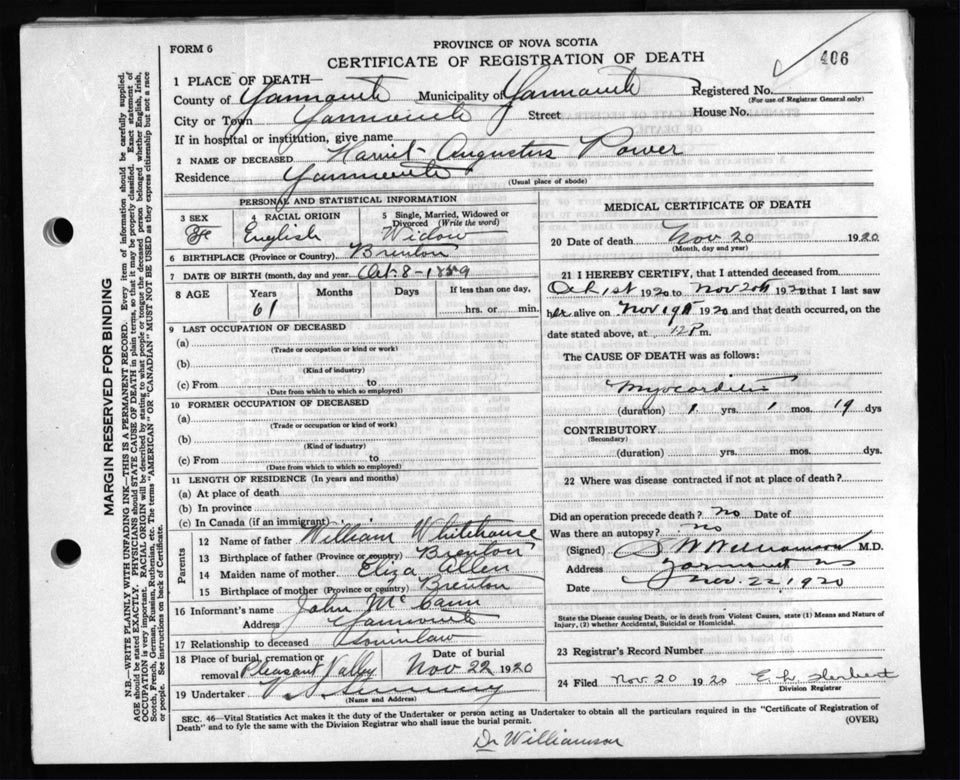 FORM 6
PROVINCE OF NOVA SCOTIA
CERTIFICATE OF REGISTRATION OF DEATH
406
1 PLACE OF DEATH—
County of Yarmouth Municipality of Yarmouth Registered No.
(For use of Registrar General only)
City or Town Yarmouth Street House No.
If in hospital or institution, give name
2 NAME OF DECEASED Harriet Augustus Power
Residence Yarmouth
(Usual place of abode)
PERSONAL AND STATISTICAL INFORMATION
3 SEX
F
4 RACIAL ORIGIN
English
5 Single, Married, Widowed or Divorced (Write the word)
Widow
6 BIRTHPLACE (Province or Country) Brenton
7 DATE OF BIRTH (month, day and year) Oct-8-1859
8 AGE Years Months Days If less than one day,
61 hrs. or min.
9 LAST OCCUPATION OF DECEASED
(a)
(Trade or occupation or kind or work)
(b)
(Kind of industry)
(c) From to
(Date from which to which so employed)
10 FORMER OCCUPATION OF DECEASED
(a)
(Trade or occupation or kind of work)
(b)
(Kind of industry)
(c) From to
(Date from which to which so employed)
11 LENGTH OF RESIDENCE (In years and months)
(a) At place of death
(b) In province
(c) In Canada (if an immigrant)
Parents
12 Name of father William Whitehouse
13 Birthplace of father (Province or country) Brenton
14 Maiden name of mother Eliza Allen
15 Birthplace of mother (Province or country) Brenton
16 Informant's name John McCann
Address Yarmouth
17 Relationship to deceased Soninlaw
18 Place of burial, cremation or removal Pleasant Valley
Date of burial Nov 22 1920
19 Undertaker
(Name and Address)
MEDICAL CERTIFICATE OF DEATH
20 Date of death Nov 20 1920
(Month, day and year)
21 I HEREBY CERTIFY, that I attended deceased from
Oct 1st 1920 to Nov 20th 1920 that I last saw
her alive on Nov 19th 1920 and that death occurred, on the
date stated above, at 12 P m.
The CAUSE OF DEATH was as follows:
Myocarditis
(duration) 1 yrs. 1 mos. 19 dys
CONTRIBUTORY
(Secondary)
(duration) yrs. mos. dys.
22 Where was disease contracted if not at place of death?
Did an operation precede death? no Date of
Was there an autopsy? no
(Signed) S W Williamson M.D.
Address Yarmouth NS
Date Nov. 22 1920
State the Disease causing Death, or in death from Violent Causes, state (1) Means and Nature of
Injury, (2) whether Accidental, Suicidal or Homicidal.
23 Registrar's Record Number
24 Filed Nov. 20 1920 E. L. Herbert
Division Registrar
SEC. 46—Vital Statistics Act makes it the duty of the Undertaker or person acting as Undertaker to obtain all the particulars required in the "Certificate of Registration of
Death" and to fyle the same with the Division Registrar who shall issue the burial permit.
(OVER)
Dr Williamson
MARGIN RESERVED FOR BINDING
N.B.—WRITE PLAINLY WITH UNFADING INK—THIS IS A PERMANENT RECORD. Every item of information should be carefully supplied.
AGE should be stated EXACTLY. PHYSICIANS should STATE CAUSE OF DEATH in plain terms, so that it may be properly classified. Exact statement of
OCCUPATION is very important. RACIAL ORIGIN will be described by stating to what people or tongue the deceased person belonged whether English, Irish,
Scotch, French, German, Russian, Ruthenian, etc. The terms "AMERICAN" or "CANADIAN" MUST NOT BE USED as they express citizenship but not a race
or people. See instructions on back of Certificate.